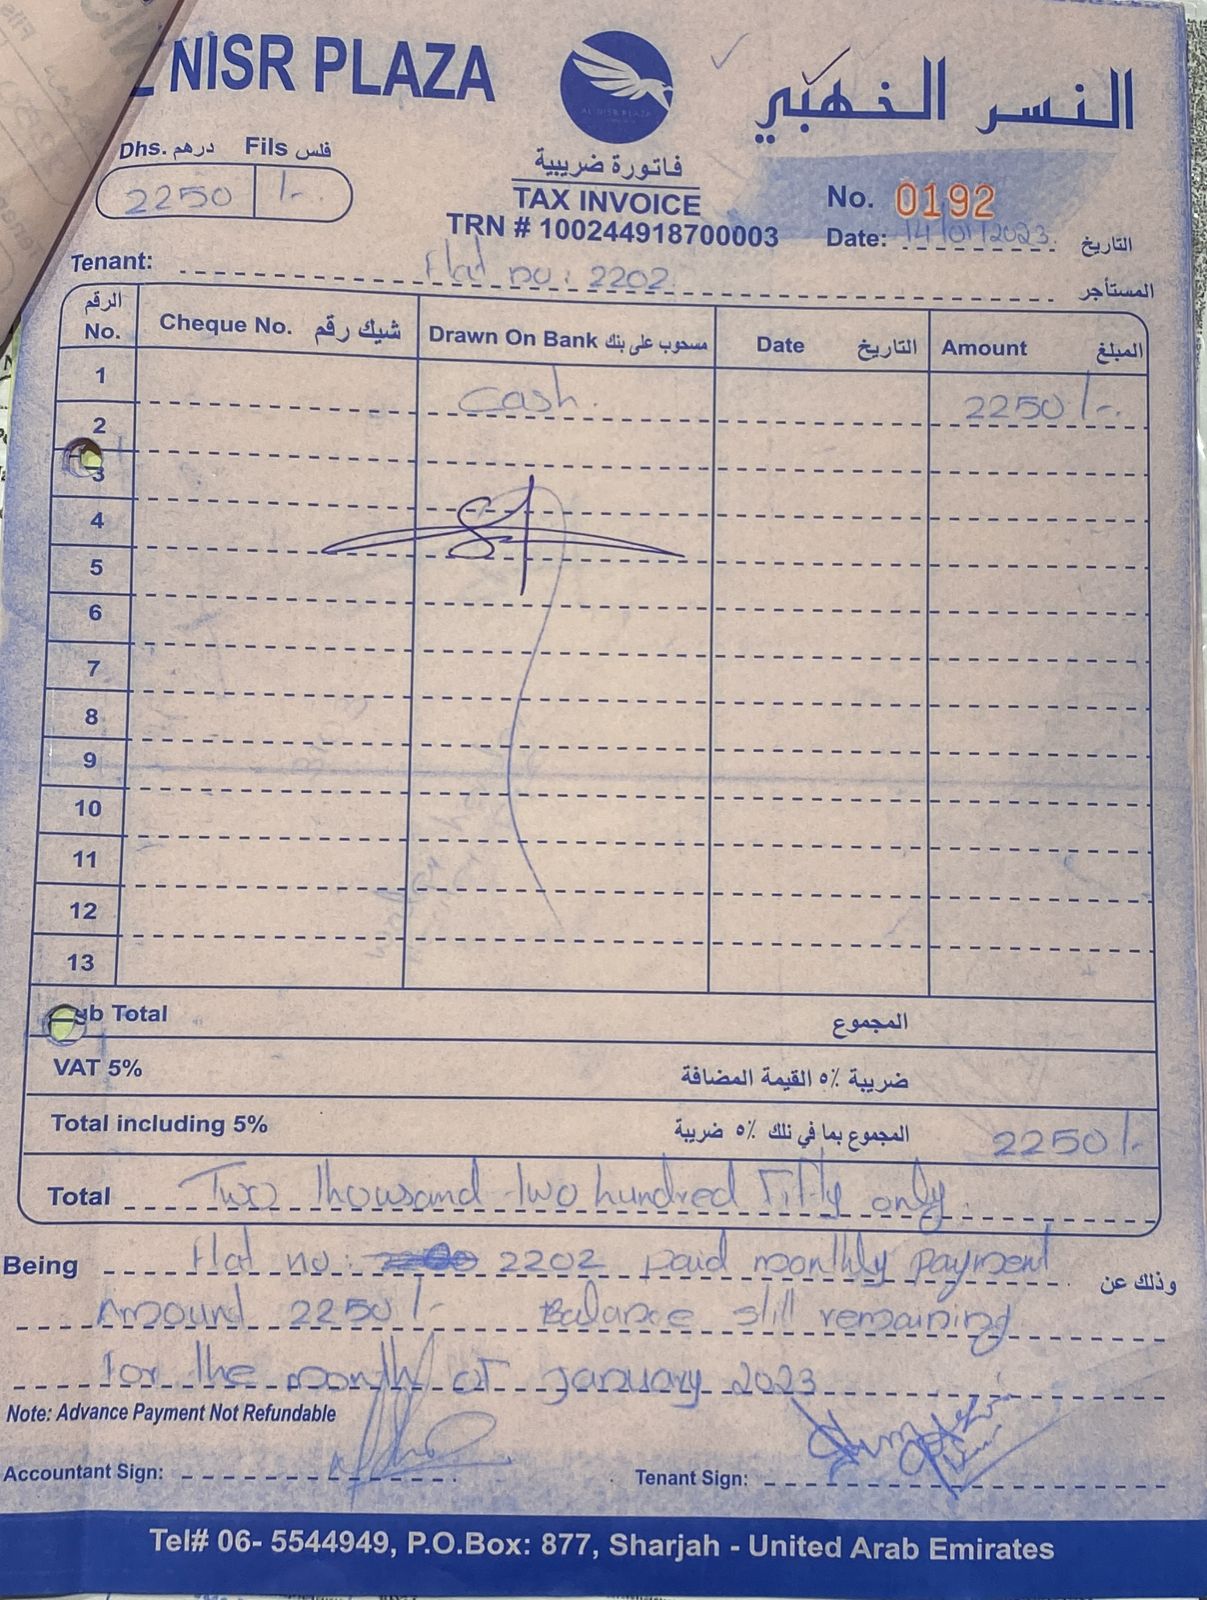 NISR PLAZA
النسر الخهبي
AL NISR PLAZA
Dhs. درهم Fils فلس
2250 /-
فاتورة ضريبية
TAX INVOICE
TRN # 100244918700003
No. 0192
Date: 14/01/2023 التاريخ
Tenant: Flat no: 2202 المستأجر
الرقم No. Cheque No. شيك رقم Drawn On Bank مسحوب على بنك Date التاريخ Amount المبلغ
1 Cash. 2250/-
2
3
4
5
6
7
8
9
10
11
12
13
ub Total المجموع
VAT 5% ضريبة ٥٪ القيمة المضافة
Total including 5% المجموع بما في تلك ٥٪ ضريبة 2250/-
Total Two thousand two hundred Fifty only.
Being Flat no: 2202 paid monthly payment وذلك عن
Amount 2250/- Balance still remaining
for the month of January 2023
Note: Advance Payment Not Refundable
Accountant Sign:
Tenant Sign:
Tel# 06- 5544949, P.O.Box: 877, Sharjah - United Arab Emirates